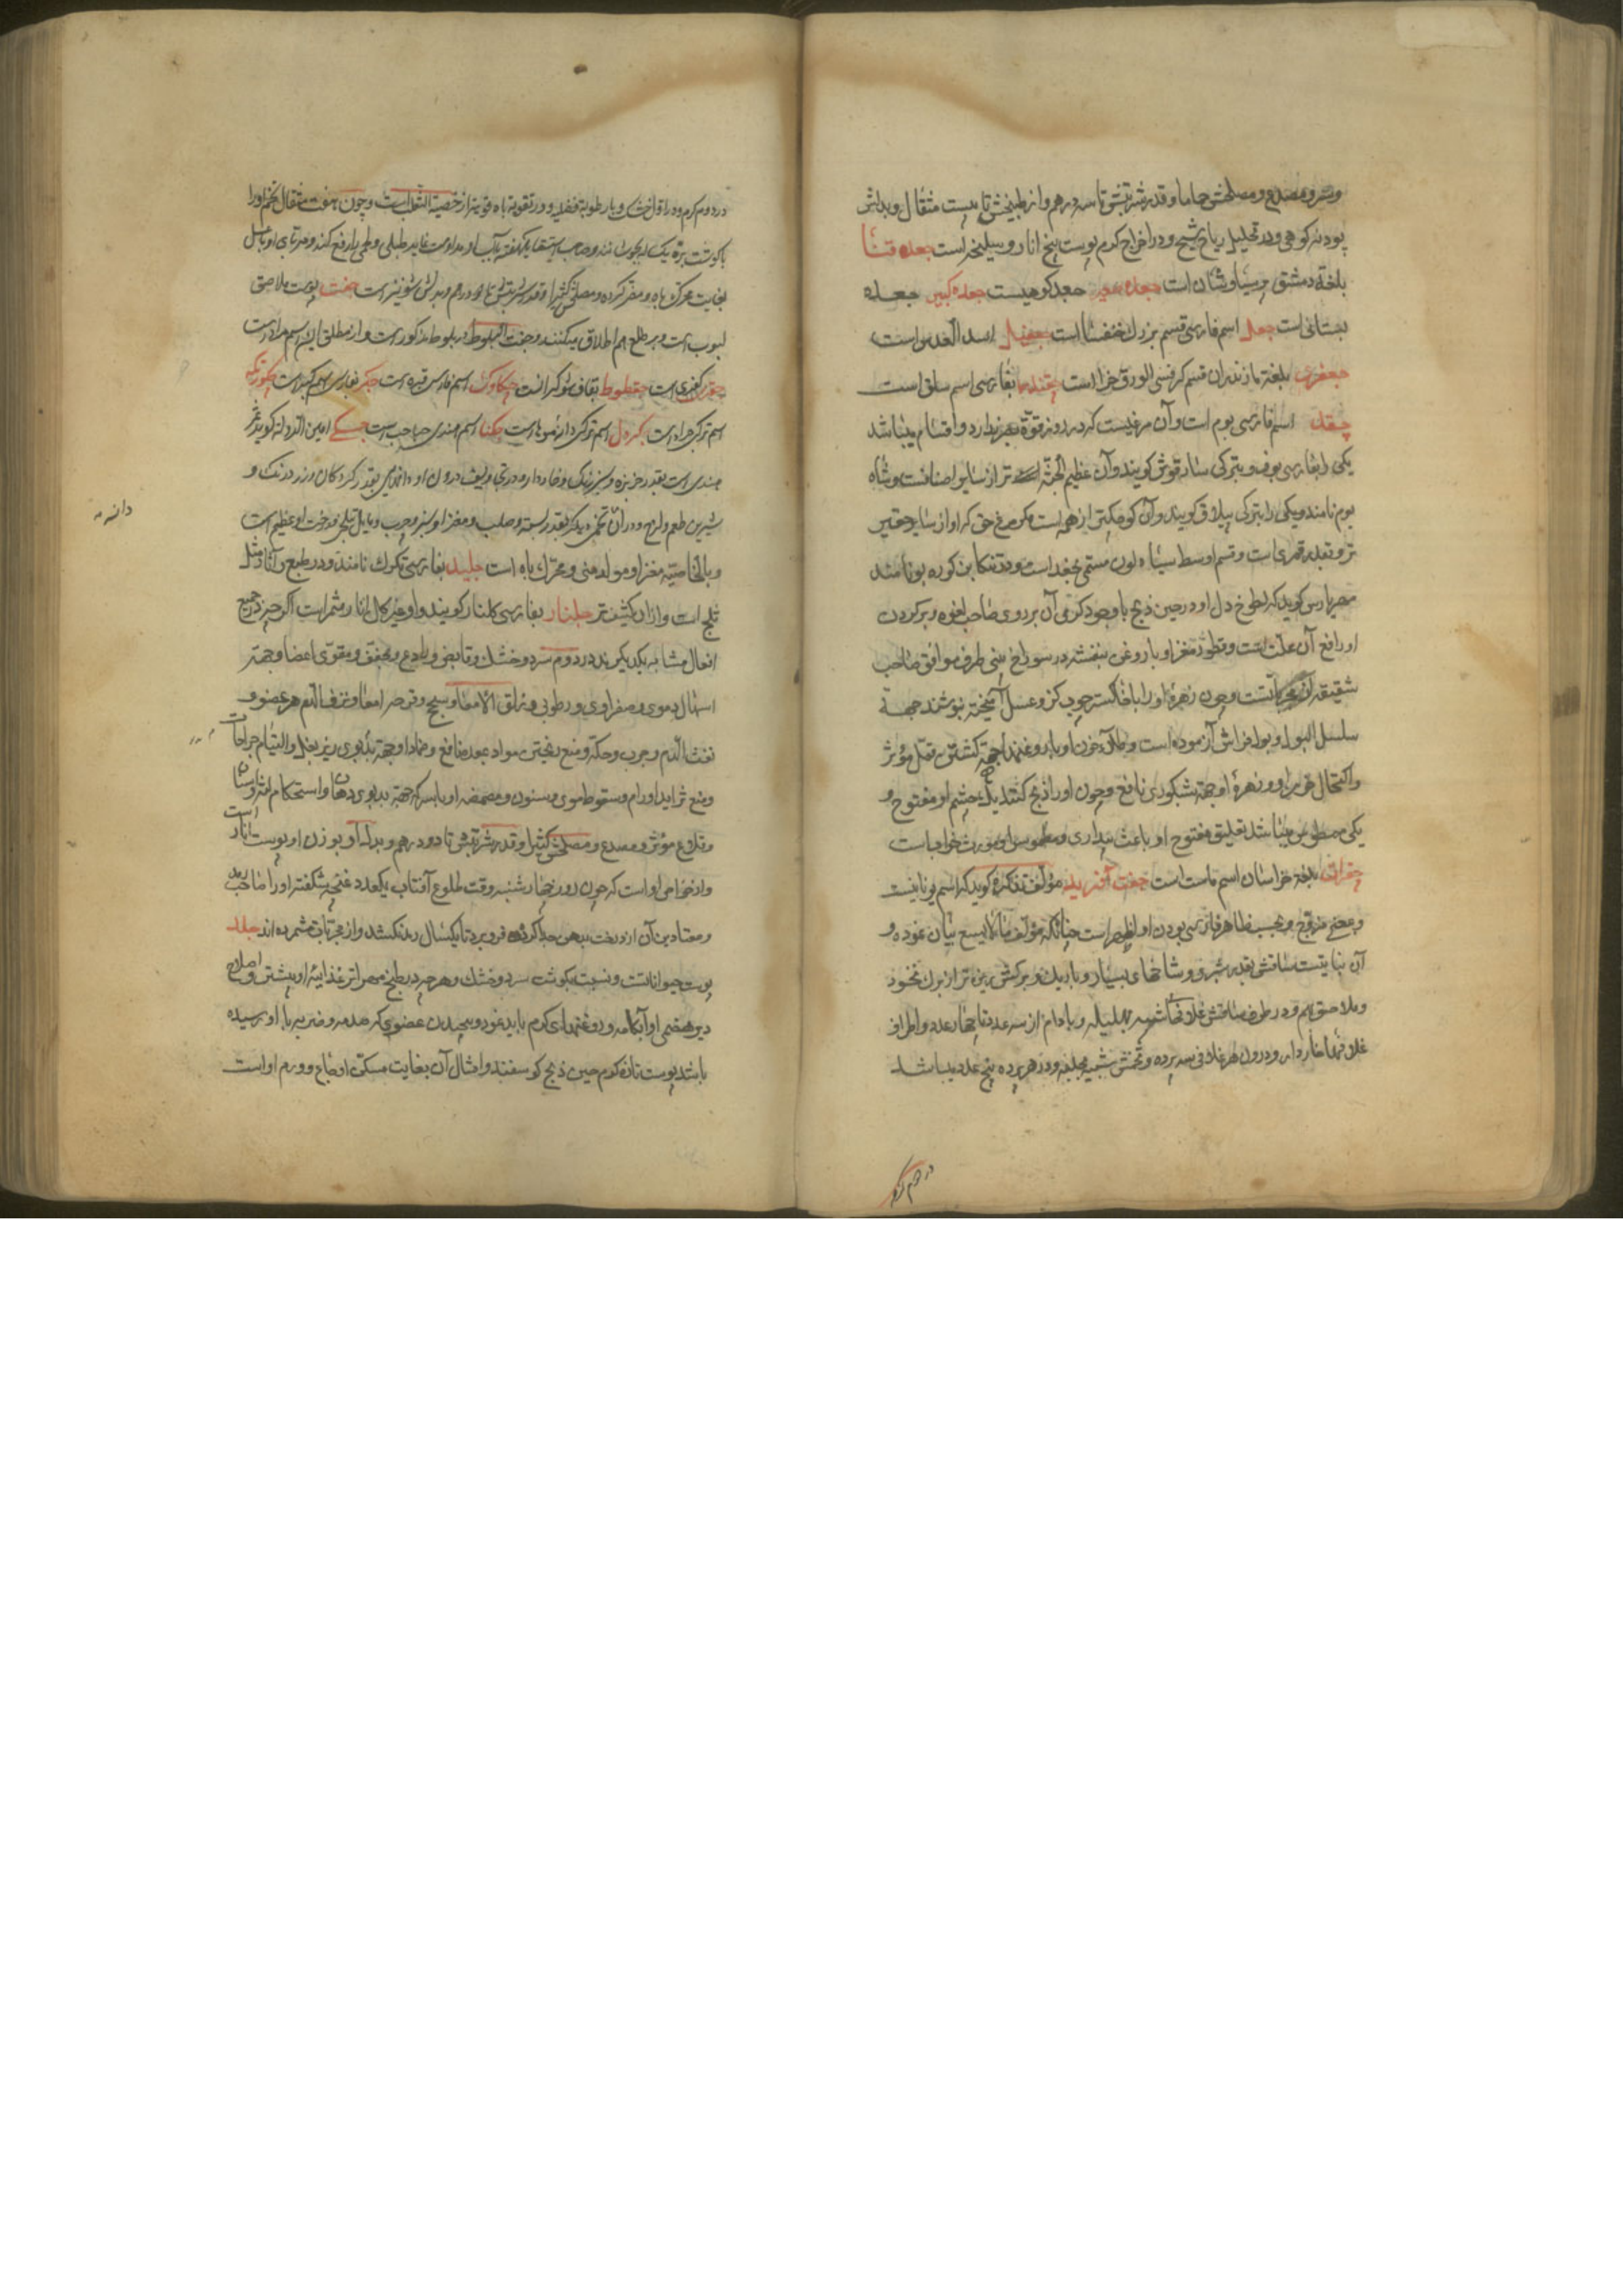 و مصدع و مصلحش حاما و قدر شربتش تا سه درهم و از طبیخش تا بیست مثقال و بدلش
پودنه کوهی و در تحلیل ریاح شیح و در اخراج کرم پوست بیخ انار و سلیخه است جعده قنا
بلغة دمشق پرسیاوشان است جعده کوهیست جعده کبیر جعده
بستانی است جعل اسم فارسی قسم بزرك خنفسا است اسد العدس است
جعفری بلغة مازندران قسم کرفس الورق خرا است چغندر بفارسی اسم سلق است
چغد اسم فارسی بوم است و آن مرغیست که در روز قوة بصر ندارد و اقسام میباشد
یکی را بفارسی بوف و بترکی ساروقوش کویند و آن عظیم الجثه تر از سایر اصنافست و شاه
بوم نامند و یکی را بترکی بیلاق کویند و آن کوچکتر از همه است و مرغ حق که او از سایر حقیر
تر و بقدر قمری است و قسم اوسط سیاه لون مسمی بجغد است و در تنکابن کوره بو نامند
مهراریس کوید که لطوخ دل او در حین ذبح با وجود کرمی آن بر روی صاحب لقوه و بر کردن
او رافع آن علت است و قطور مغز او با روغن بنفشه در سوراخ بینی طرف موافق صاحب
شقیقه از مجرباتست و چون زهره او را با خاکستر چوب کز و عسل آمیخته بنوشند جهة
سلسل البول و بول فراش آزموده است و طلاء خون او با روغنها جهة کشتن قمل مؤثر
و اکتحال خون او و زهرۀ او جهة شبکوری نافع و چون او را ذبح کنند یك چشم او مفتوح و
یکی مطموس میباشد تعلیق مفتوح او باعث بیداری و مطموس او مورث خواب است
چغرات بلغة خراسان اسم ماست است جفت آفرید مؤلف تذکره کوید که اسم یونانیست
و بمعنی مزوج و بحسب ظاهر فارسی بودن او اظهر است چنانکه مؤلف مالایسع بیان نموده و
آن نباتیست ساقش بقدر شبر و شاخهای بسیار و باریك و برکش ریزه تر از برك نخود
و ملاصق بهم و در طرف ساقش غلافها شبیه بهلیله و بادام از سه عدد تا چهار عدد و اطراف
غلافها خاردار و در درون هر غلافی سه پرده و تخمش شبیه بحلبه و در هر پرده پنج عدد میباشد
در دوم کرم
در دوم کرم و در اول خشك و با رطوبة فضلیه و در تقویة باه قویتر از خصیة الثعلب است و چون هفت مثقال تخم او را
با کوشت بره یک ساله بجوشانند و صاحب استسقا یکهفته بآب او مداومت نماید طبلی و لحمی را رفع کند و مربای او با عسل
بغایت محرك باه و مضر کرده و مصلحش کثیرا و قدر شربتش تا دو درهم و بدلش شونیز است جفت پوست ملاصق
لبوب است و بر طلع هم اطلاق میکنند و جفت البلوط در بلوط مذکور است و از مطلق این اسم مراد است
جفری کفری است جقطوط بقاف شوکرانست چکاوك اسم فارسی قبره است جکر بفارسی اسم کبد است چکورتکه
اسم ترکی جراد است اسم ترکی دارنموها است چکنا اسم هندی حباحب است جسکه امین الدوله کوید ثمر
هندی است بقدر خربزه و سبز رنك و خاردار و در تجاویف درون او دانهای بقدر کردکان و زرد رنك و
شیرین طعم و لزج و در آن تخمی دیکر بقدر پسته و صلب و مغز او سبز و چرب و مایل بتلخی و درخت او عظیم است
و بالخاصیه مغز او مولد منی و محرك باه است جلید بفارسی تکرك نامند و در طبع و آثار مثل
ثلج است و از آن کثیفتر جلنار بفارسی کلنار کویند و او غیر کل انار مثمر است اکرچه در جمیع
افعال مشابه یکدیکرند در دوم سرد و خشك و قابض و رادع و مجفف و مقوی اعضا و جهة
اسهال دموی و صفراوی و رطوبی و زلق الامعا و سحج و قرحه امعا و نزف الدم هر عضو و
نفث الدم و جرب و حکه و منع ریختن مواد بمعده نافع و ضمادا و جهة بدبوی زیر بغل و التیام جراحات
و منع تزاید اورام و سقوط موی و سنون و مضمضه او با سرکه جهة بدبوی دهان و استحکام لثه و اسنان
و قلاع مؤثر و مصدع و مصلحش کثیرا و قدر شربتش تا دو درهم و بدل او بوزن او پوست انار است
و از خواص او است که چون روز چهارشنبه وقت طلوع آفتاب یکعدد غنچه شکفته او را صاحب رمد
و معتاد بن آن از درخت بدهن جدا کرده فرو برد تا یکسال رمد نکشد و از مجربات شمرده اند جلد
پوست حیواناتست و نسبت بکوشت سرد و خشك و هر چه در طبخ مهراتر غذائیة او بیشتر و اصلاح
دیر هضمی او آبکامه و روغنهای کرم باید نمود و پیچیدن عضوی که صدمه و ضربه با او رسیده
باشد پوست تازه کرم حین ذبح کوسفند و امثال آن بغایت مسکن اوجاع و ورم او است
دانه